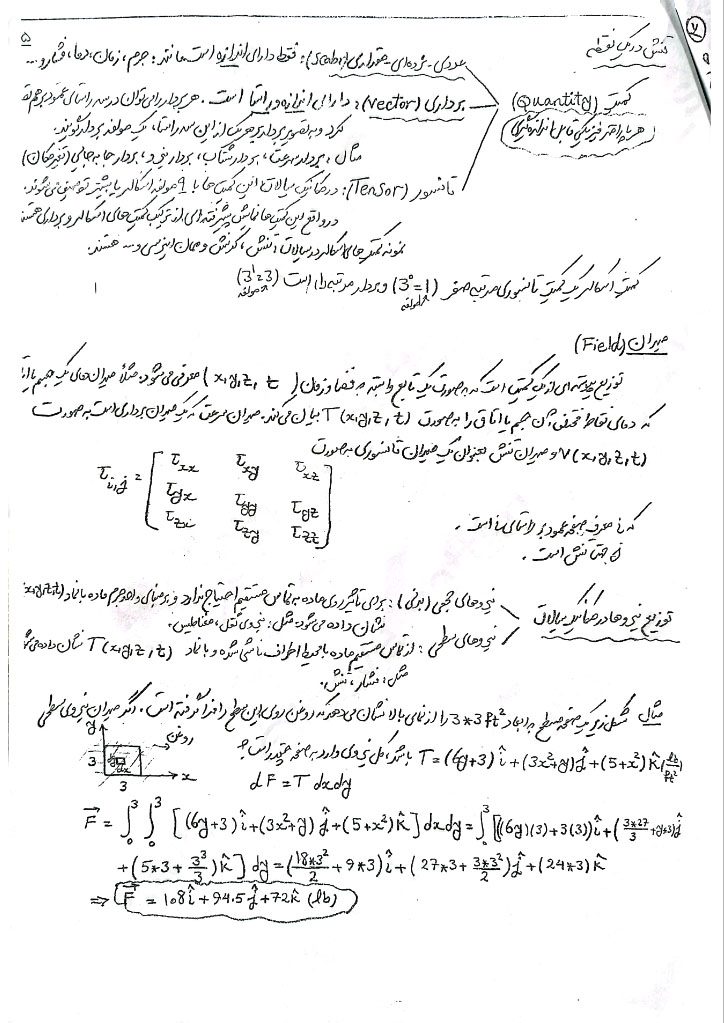 ۷
۵
تنش در یک نقطه
عددی - نرده‌ای - مقداری (Scalar): فقط دارای اندازه است مانند: جرم، زمان، دما، فشار و...
کمیت (Quantity)
هر پارامتر فیزیکی قابل اندازه‌گیری
برداری (Vector): دارای اندازه و راستا است. هر بردار را می‌توان در سه راستای عمود بر هم
کرد و به تصویر بردار بر هر یک از این سه راستا، یک مولفه بردار گویند.
مثال: بردار سرعت، بردار شتاب، بردار نیرو، بردار جابه‌جایی (تغییر مکان)
تانسور (Tensor): در مکانیک سیالات این کمیت‌ها با 9 مولفه اسکالر یا بیشتر توصیف می‌شوند.
در واقع این کمیت‌ها نمایش پیشرفته‌ای از ترکیب کمیت‌های اسکالر و برداری هستند
نمونه کمیت‌های اسکالر در سیالات: تنش، کرنش و ممان اینرسی و... هستند.
کمیت اسکالر یک کمیت تانسوری مرتبه صفر (3⁰=1) و بردار مرتبه 1 است (3¹=3)
مولفه مولفه
میدان (Field)
توزیع پیوسته‌ای از یک کمیت است که به صورت یک تابع وابسته به فضا و زمان (x,y,z,t) معرفی می‌شود. مثلاً میدان دمای یک جسم یا
که دمای نقاط مختلف آن جسم یا اتاق را به صورت T(x,y,z,t) بیان می‌کند. میدان سرعت که یک میدان برداری است به صورت
V(x,y,z,t) و میدان تنش بعنوان یک میدان تانسوری به صورت
τi,j = [ τxx τxy τxz
τyx τyy τyz
τzx τzy τzz ]
که i معرف صفحه عمود بر راستای i است.
j جهت تنش است.
توزیع نیروها در مکانیک سیالات
نیروهای حجمی (بدنی): برای تأثیر روی ماده به تماس مستقیم احتیاج ندارد و بر مبنای واحد جرم ماده با نماد (x,y,z,t)
نشان داده می‌شود. مثل: نیروی ثقل، مغناطیس.
نیروهای سطحی: از تماس مستقیم ماده با محیط اطراف ناشی شده و با نماد T(x,y,z,t) نشان داده می‌شود
مثل: فشار، تنش.
مثال شکل زیر یک صفحه مسطح به ابعاد 3*3 ft² را از نمای بالا نشان می‌دهد که روغن روی این سطح را فرا گرفته است. اگر میدان نیروی سطحی
T = (6y+3)î + (3x²+y)ĵ + (5+x²)k̂ (lb/ft²) باشد، کل نیروی وارد به صفحه چقدر است؟
y
روغن
3
dy
dx
x
3
dF = T dxdy
F⃗ = ∫₀³ ∫₀³ [(6y+3)î + (3x²+y)ĵ + (5+x²)k̂] dxdy = ∫₀³ [((6y)(3)+3(3))î + (3*27/3 + y*3)ĵ
+ (5*3 + 3³/3)k̂] dy = (18*3²/2 + 9*3)î + (27*3 + 3*3²/2)ĵ + (24*3)k̂
⇒ F⃗ = 108î + 94.5ĵ + 72k̂ (lb)